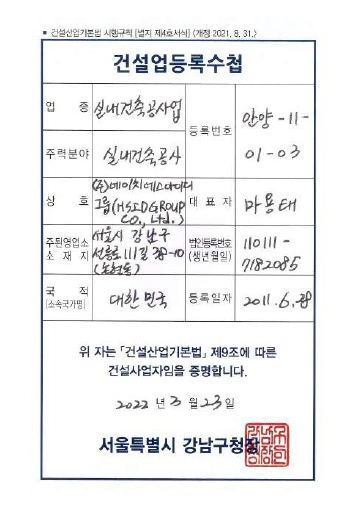 ■ 건설산업기본법 시행규칙 [별지 제4호서식] <개정 2021. 8. 31.>
건설업등록수첩
업 종 실내건축공사업
등록번호 안양-11-
01-03
주력분야 실내건축공사
상 호 (주)에이치에스아이디
그룹(HSIDGROUP
CO., Ltd.)
대 표 자 마용태
주된영업소
소 재 지
서울시 강남구
선릉로111길 38-10
(논현동)
법인등록번호
(생년월일)
110111-
7182085
국 적
[소속국가명]
대한민국
등록일자 2011.6.28
위 자는 「건설산업기본법」 제9조에 따른
건설사업자임을 증명합니다.
2022 년 3 월 23 일
서울특별시 강남구청장